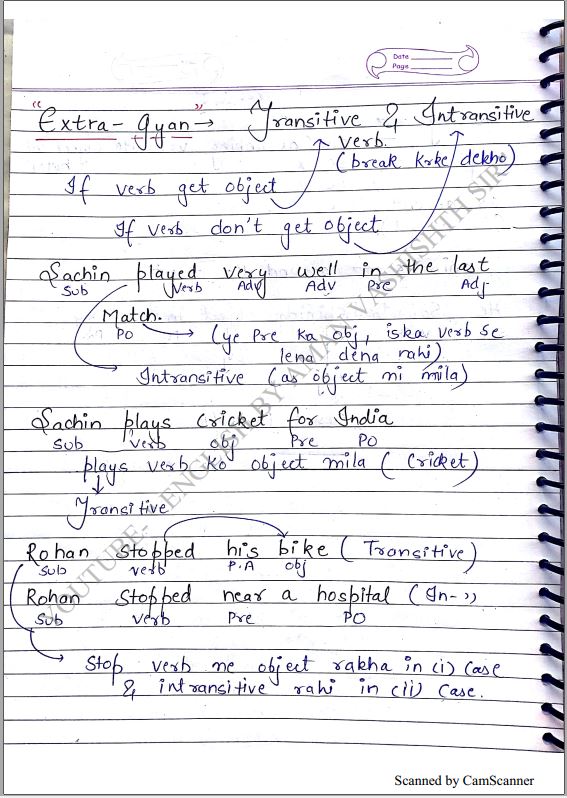 Date
Page
"Extra-gyan" → Transitive & Intransitive
Verb.
(break krke dekho)
If verb get object
If verb don't get object
Sachin played very well in the last
Sub Verb Adv Adv Pre Adj
Match.
PO → (ye Pre ka obj, iska verb se
lena dena nahi)
Intransitive (as object ni mila)
Sachin plays cricket for India
Sub verb obj Pre PO
plays verb ko object mila (Cricket)
Transitive
Rohan stopped his bike (Transitive)
Sub verb P.A obj
Rohan stopped near a hospital (In-„)
Sub verb Pre PO
Stop verb ne object rakha in (i) case
& intransitive rahi in (ii) case.
YOUTUBE- ENGLISH BY AMAN VASHISHTH SIR
Scanned by CamScanner